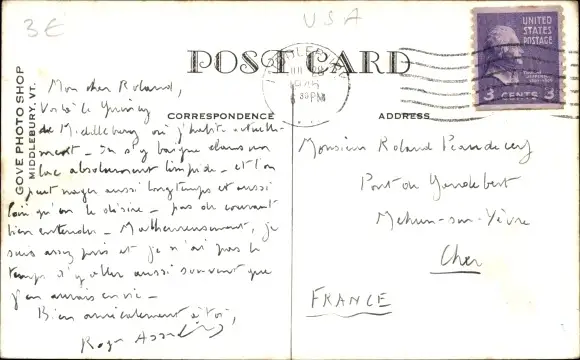 3€
USA
POST CARD
UNITED
STATES
POSTAGE
3 CENTS 3
MIDDLEBURY
30 PM
GOVE PHOTO SHOP
MIDDLEBURY, VT.
CORRESPONDENCE
ADDRESS
Mon cher Roland,
Voilà le
de Middlebury où j'habite actuelle-
ment - On s'y baigne dans un
lac absolument limpide - et l'on
peut nager aussi longtemps et aussi
loin qu'on le désire - pas de courant
bien entendu - Malheureusement, je
suis assez pris et je n'ai pas le
temps d'y aller aussi souvent que
j'en aurais envie -
Bien amicalement à toi,
Roger
Monsieur Roland
Pont de
Mehun-sur-Yèvre
Cher
FRANCE